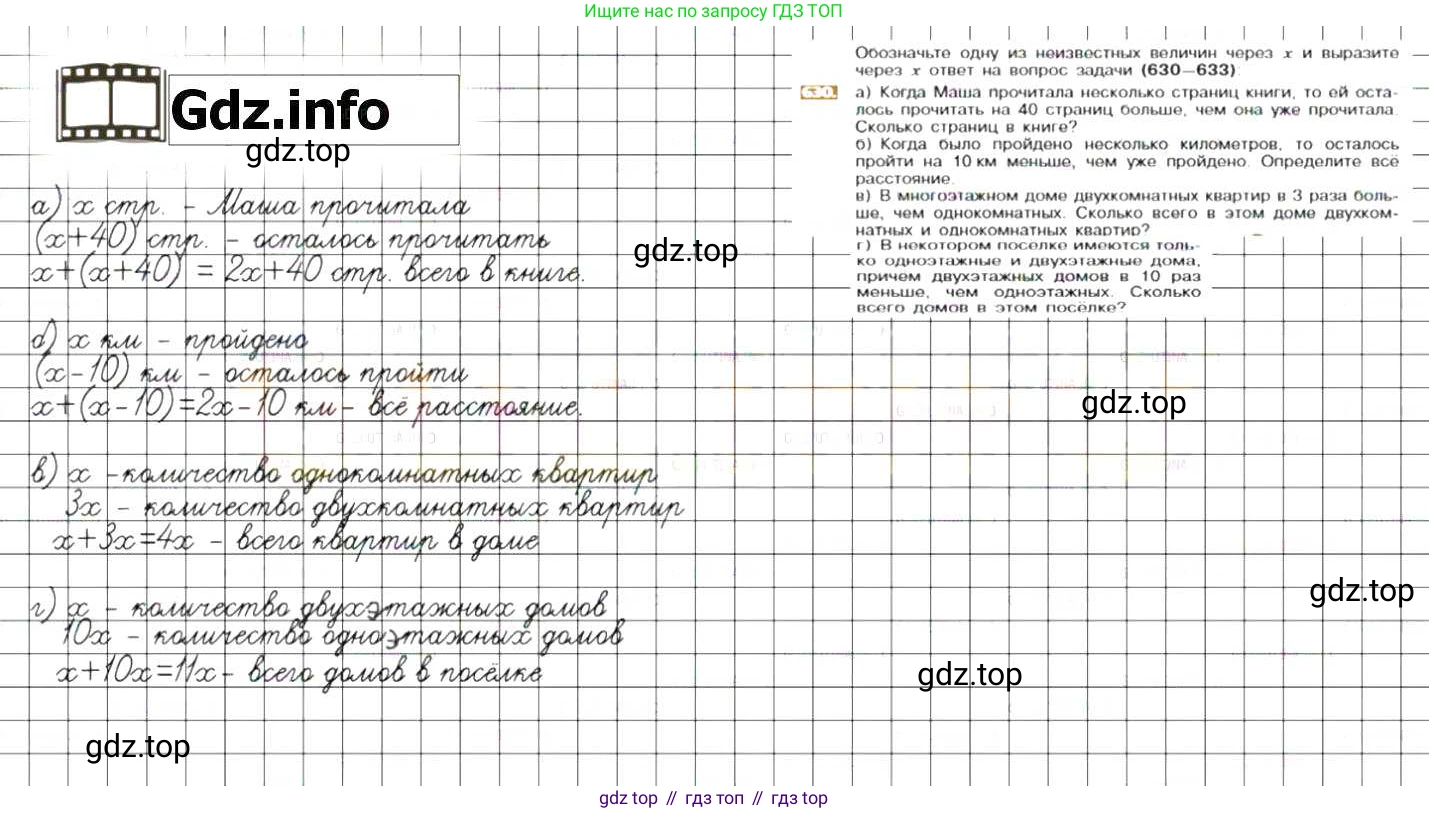 Ищите нас по запросу ГДЗ ТОП
Gdz.info
gdz.top
Обозначьте одну из неизвестных величин через x и выразите
через x ответ на вопрос задачи (630—633):
630.
а) Когда Маша прочитала несколько страниц книги, то ей оста-
лось прочитать на 40 страниц больше, чем она уже прочитала.
Сколько страниц в книге?
б) Когда было пройдено несколько километров, то осталось
пройти на 10 км меньше, чем уже пройдено. Определите всё
расстояние.
в) В многоэтажном доме двухкомнатных квартир в 3 раза боль-
ше, чем однокомнатных. Сколько всего в этом доме двухком-
натных и однокомнатных квартир?
г) В некотором поселке имеются толь-
ко одноэтажные и двухэтажные дома,
причем двухэтажных домов в 10 раз
меньше, чем одноэтажных. Сколько
всего домов в этом посёлке?
а) x стр. - Маша прочитала
(x+40) стр. - осталось прочитать
x+(x+40) = 2x+40 стр. всего в книге.
gdz.top
б) x км - пройдено
(x-10) км - осталось пройти
x+(x-10)=2x-10 км - всё расстояние.
gdz.top
в) x - количество однокомнатных квартир
3x - количество двухкомнатных квартир
x+3x=4x - всего квартир в доме
gdz.top
г) x - количество двухэтажных домов
10x - количество одноэтажных домов
x+10x=11x - всего домов в посёлке
gdz.top
gdz.top
gdz top // гдз топ // gdz top